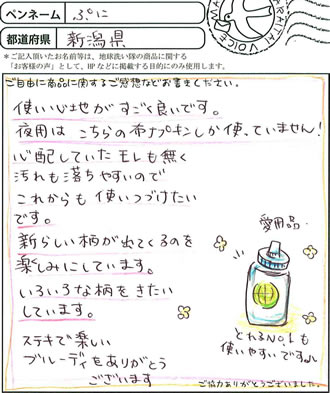 ペンネーム ぷに
都道府県 新潟県
＊ご記入頂いたお名前等は、地球洗い隊の商品に関する
「お客様の声」として、HPなどに掲載する目的にのみ使用します。
ご自由に商品に関するご感想などお書きください。
使い心地がすごく良いです。
夜用は こちらの布ナプキンしか使っていません!
心配していたモレも無く
汚れも落ちやすいので
これからも 使いつづけたい
です。
新らしい柄が出てくるのを
楽しみにしています。
いろいろな柄をきたい
しています。
ステキで楽しい
ブルーデイをありがとう
ございます
愛用品
とれるNo.1も
使いやすいです。
ご協力ありがとうございました。